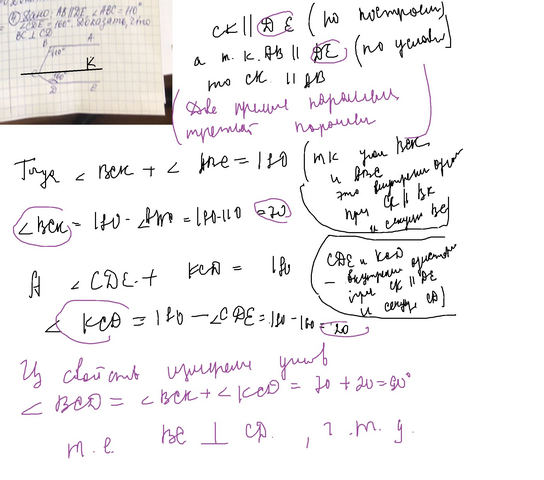 Дано: AB || DE, ∠ABC = 110°
∠CDE = 160°. Доказать, что
BC ⊥ CD.
B A
110°
K
160°
D E
CK || DE (по построен)
а т.к. AB || DE (по услови)
то CK || AB
(Две прямые параллельн
третьей параллельн)
Тогда ∠ BCK + ∠ ABC = 180
(тк углы BCK
и ABC
это внутрен одност
при CK || BK
и секущ BC)
∠BCK = 180 - ∠ABC = 180-110 = 70
А ∠CDE + KCD = 180
CDE и KCD
– внутрен односторон
при CK || DE
и секущ CD)
∠ KCD = 180 – ∠CDE = 180 - 160 = 20
Из свойств измерени углов
∠ BCD = ∠BCK + ∠KCD = 70 + 20 = 90°
т.е. BC ⊥ CD, ч.т.д.